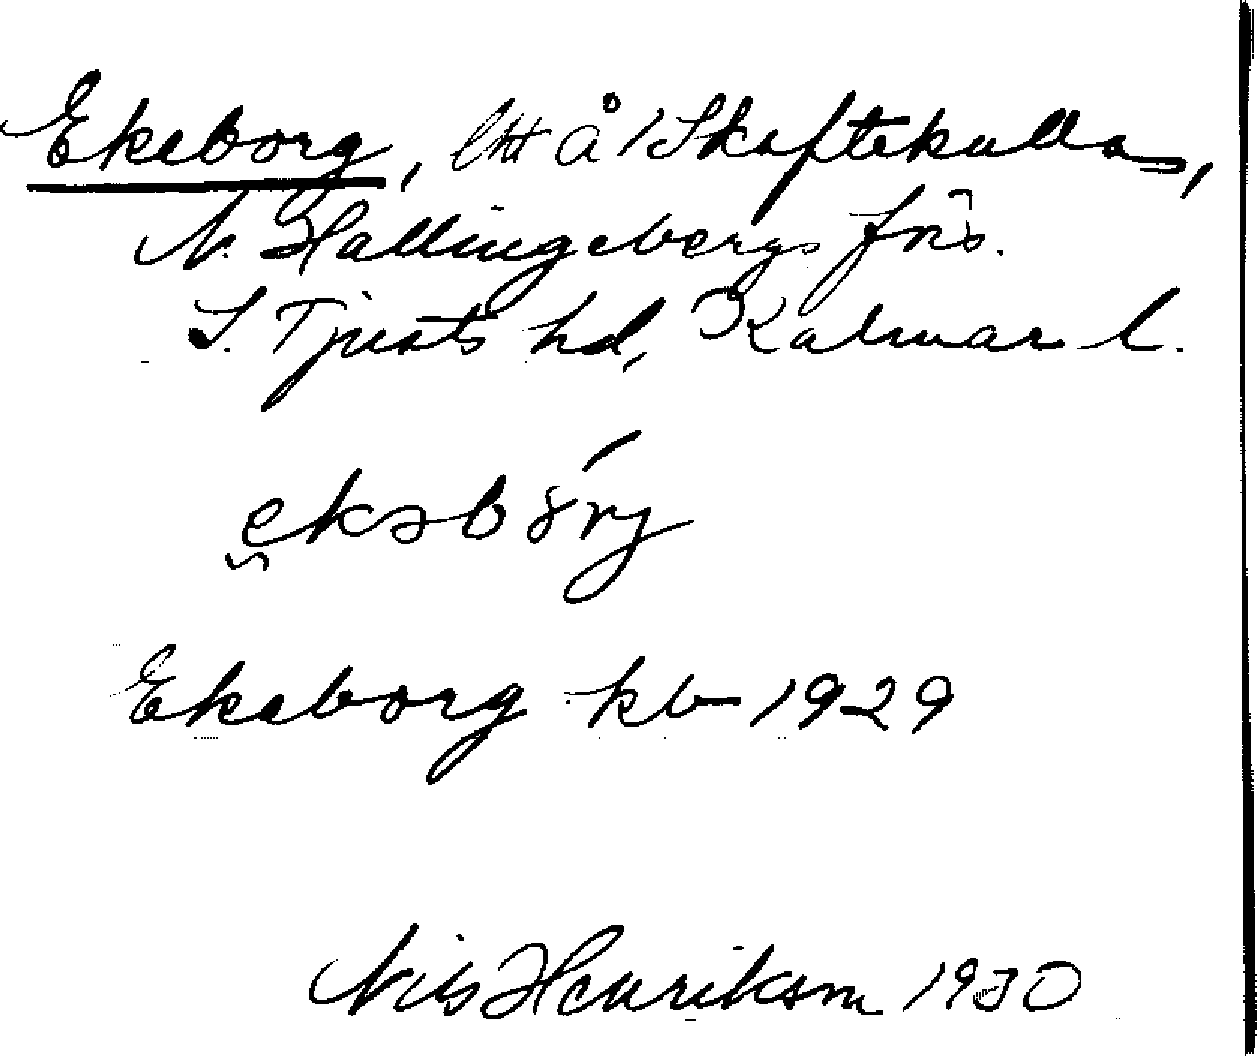 Ekeborg, lht å 1 Skaftekulla,
N. Hallingebergs
S. Tjusts hd, Kalmar l.
Ekeborg kb 1929
Nils Henrikson 1930